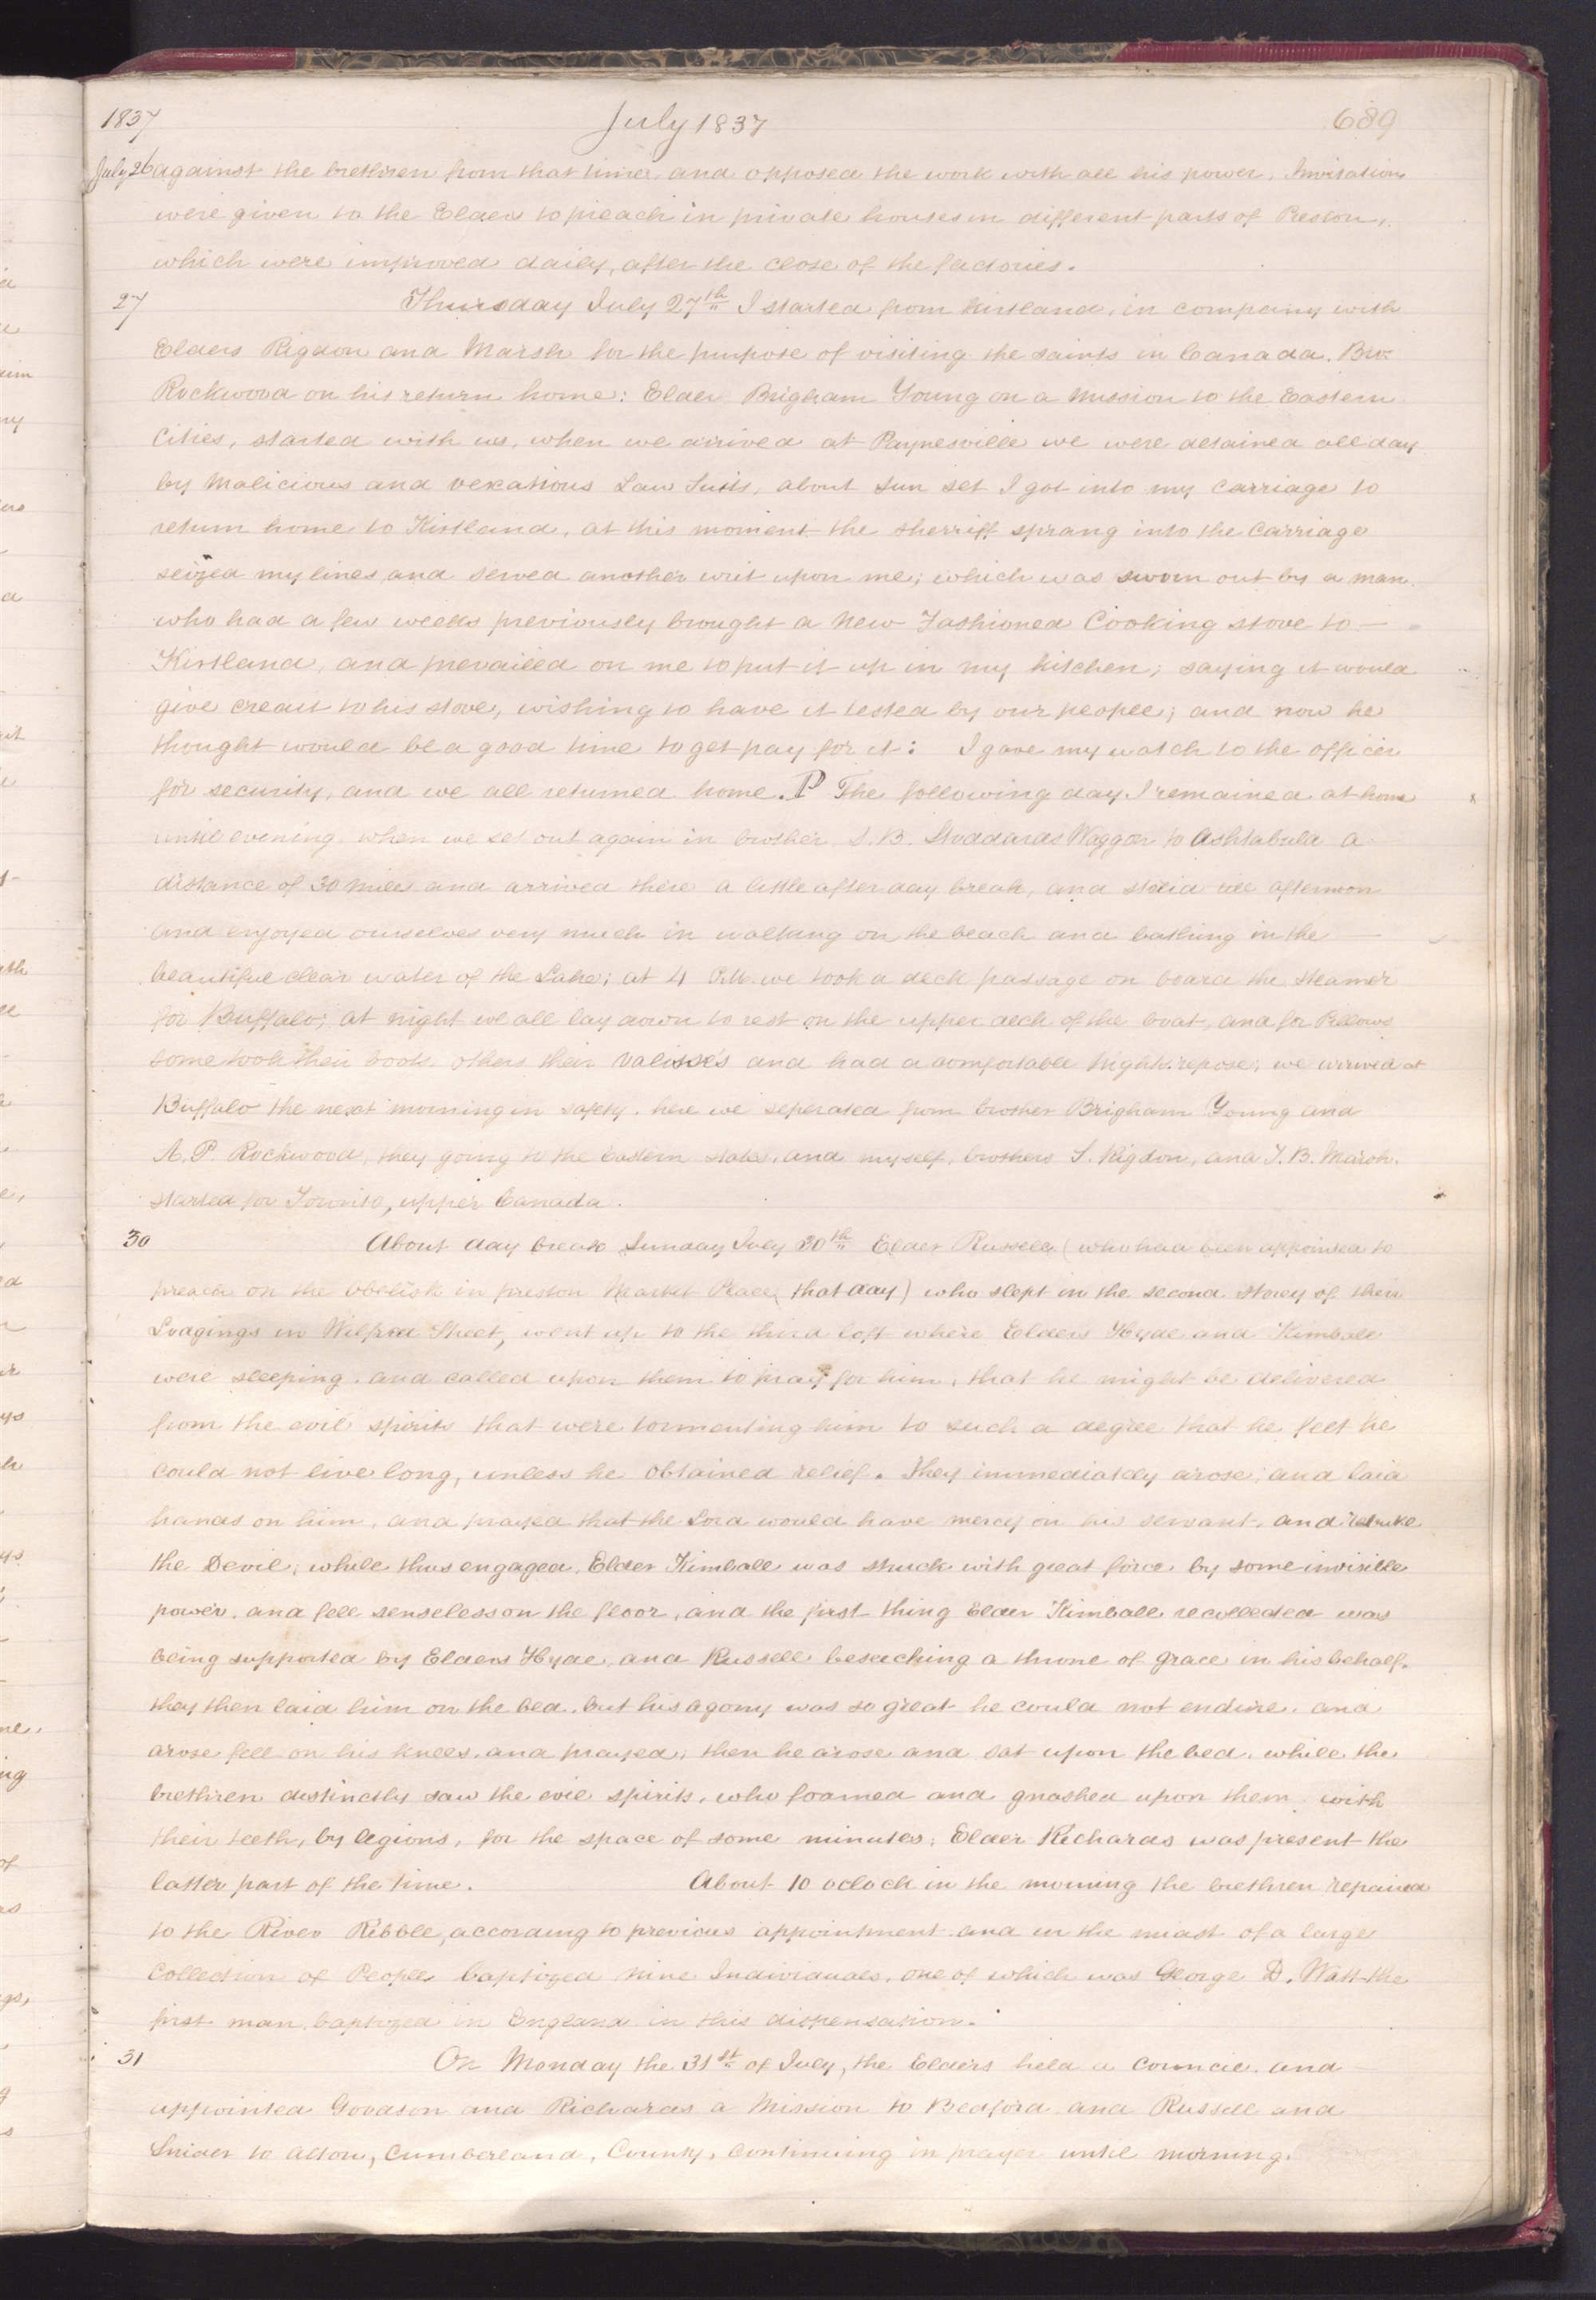 1837 July 1837 689
July 26 against the brethren from that time, and opposed the work with all his power. Invitations
were given to the Elders to preach in private houses in different parts of Preston,
which were improved daily, after the close of the factories.
27 Thursday July 27th I started from Kirtland, in company with
Elders Rigdon and Marsh for the purpose of visiting the saints in Canada. Bro.
Rockwood on his return home: Elder Brigham Young on a mission to the Eastern
Cities, started with us, when we arrived at Paynesville we were detained all day
by malicious and vexatious Law Suits, about sun set I got into my carriage to
return home to Kirtland, at this moment the sherriff sprang into the Carriage
seized my lines, and served another writ upon me; which was sworn out by a man
who had a few weeks previously brought a New Fashioned Cooking stove to —
Kirtland, and prevailed on me to put it up in my kitchen; saying it would
give credit to his stove, wishing to have it tested by our people; and now he
thought would be a good time to get pay for it: I gave my watch to the officer
for security, and we all returned home. P The following day I remained at home
until evening. when we set out again in brother S. B. Stoddards Waggon to Ashtabula a
distance of 30 miles and arrived there a little after day break, and staid till afternoon
and enjoyed ourselves very much in walking on the beach and bathing in the —
beautiful clear water of the Lake; at 4 P.M. we took a deck passage on board the steamer
for Buffalo; at night we all lay down to rest on the upper deck of the boat, and for Pillows
some took their boots. others their valisses and had a comfortable nights repose; we arrived at
Buffalo the next morning in safety. here we seperated from brother Brigham Young and
A. P. Rockwood, they going to the eastern states, and myself, brothers S. Rigdon, and T. B. Marsh.
started for Toronto, upper Canada.
30 About day break Sunday July 30th Elder Russell (who had been appointed to
preach on the obelisk in preston Market Place, that day) who slept in the second storey of their
Lodgings in Wilfred Street, went up to the third loft where Elders Hyde and Kimball
were sleeping. and called upon them to pray for him, that he might be delivered
from the evil spirits that were tormenting him to such a degree that he felt he
could not live long, unless he obtained relief. They immediately arose, and laid
hands on him, and prayed that the Lord would have mercy on his servant, and rebuke
the Devil; while thus engaged, Elder Kimball was struck with great force by some invisible
power. and fell senseless on the floor, and the first thing Elder Kimball recollected was
being supported by Elders Hyde, and Russell beseaching a throne of grace in his behalf.
they then laid him on the bed, but his agony was so great he could not endure, and
arose fell on his knees, and prayed; then he arose and sat upon the bed. while the
brethren distinctly saw the evil spirits, who foamed and gnashed upon them with
their teeth, by legions, for the space of some minutes; Elder Richards was present the
latter part of the time. About 10 oclock in the morning the brethren repaired
to the River Ribble, according to previous appointment and in the midst of a large
Collection of People baptized nine Individuals, one of which was George D. Watt the
first man baptized in England in this dispensation.
31 On Monday the 31st of July, the Elders held a Council. and —
appointed Goodson and Richards a Mission to Bedford and Russell and
Snider to Alston, Cumberland, County, continuing in prayer until morning.